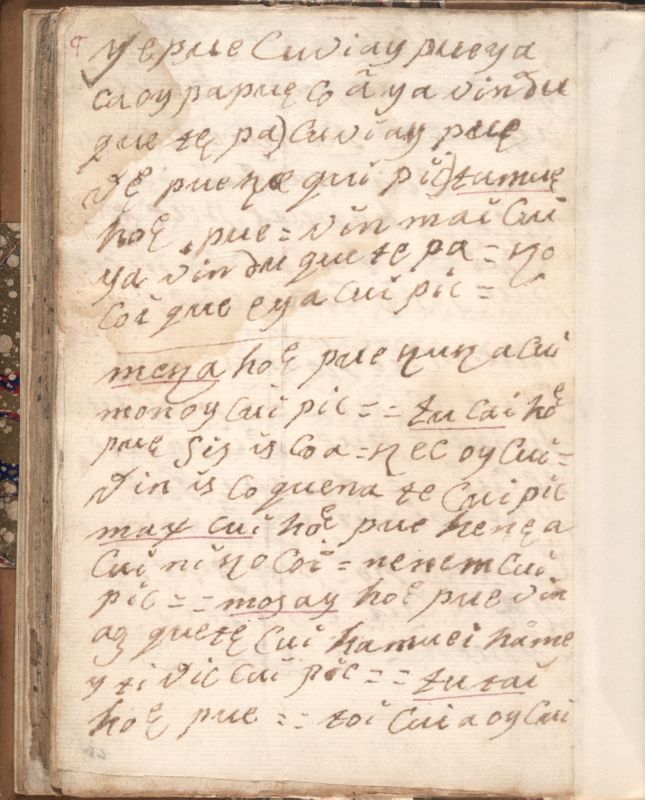 yepue Cuviay pueya
caoy papuę co ã ya vindu
que tę pa) Cuviay puę
dę pueηe qui pic) tamuę
hoę pue = vin mai Cui
ya vindu que te pa = ηo
Coi que eya cui pic =
meηa hoę pue ηuηa cui
monoy cui pic = = tu cai hoe
puę sis is coa = ηec oy cui =
din is co quena te Cui pic
max cui hoę pue henęa
Cui niηo Coi = nenem cui
pic = = mosay hoę pue vin
ag quetę Cui hamuei hame
y ti dic cui pic = = tu tai
hoę pue = = toi Cui a oy Cui